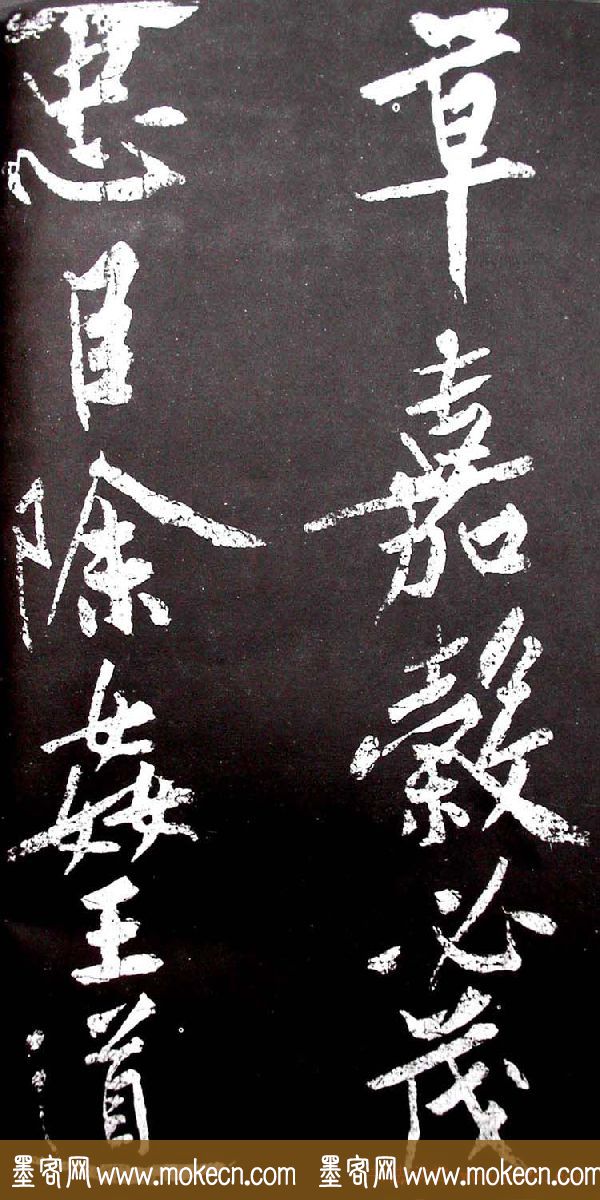 草嘉穀必茂
忠臣除姦王道
墨客网 www.mokecn.com 墨客网 www.mokecn.com